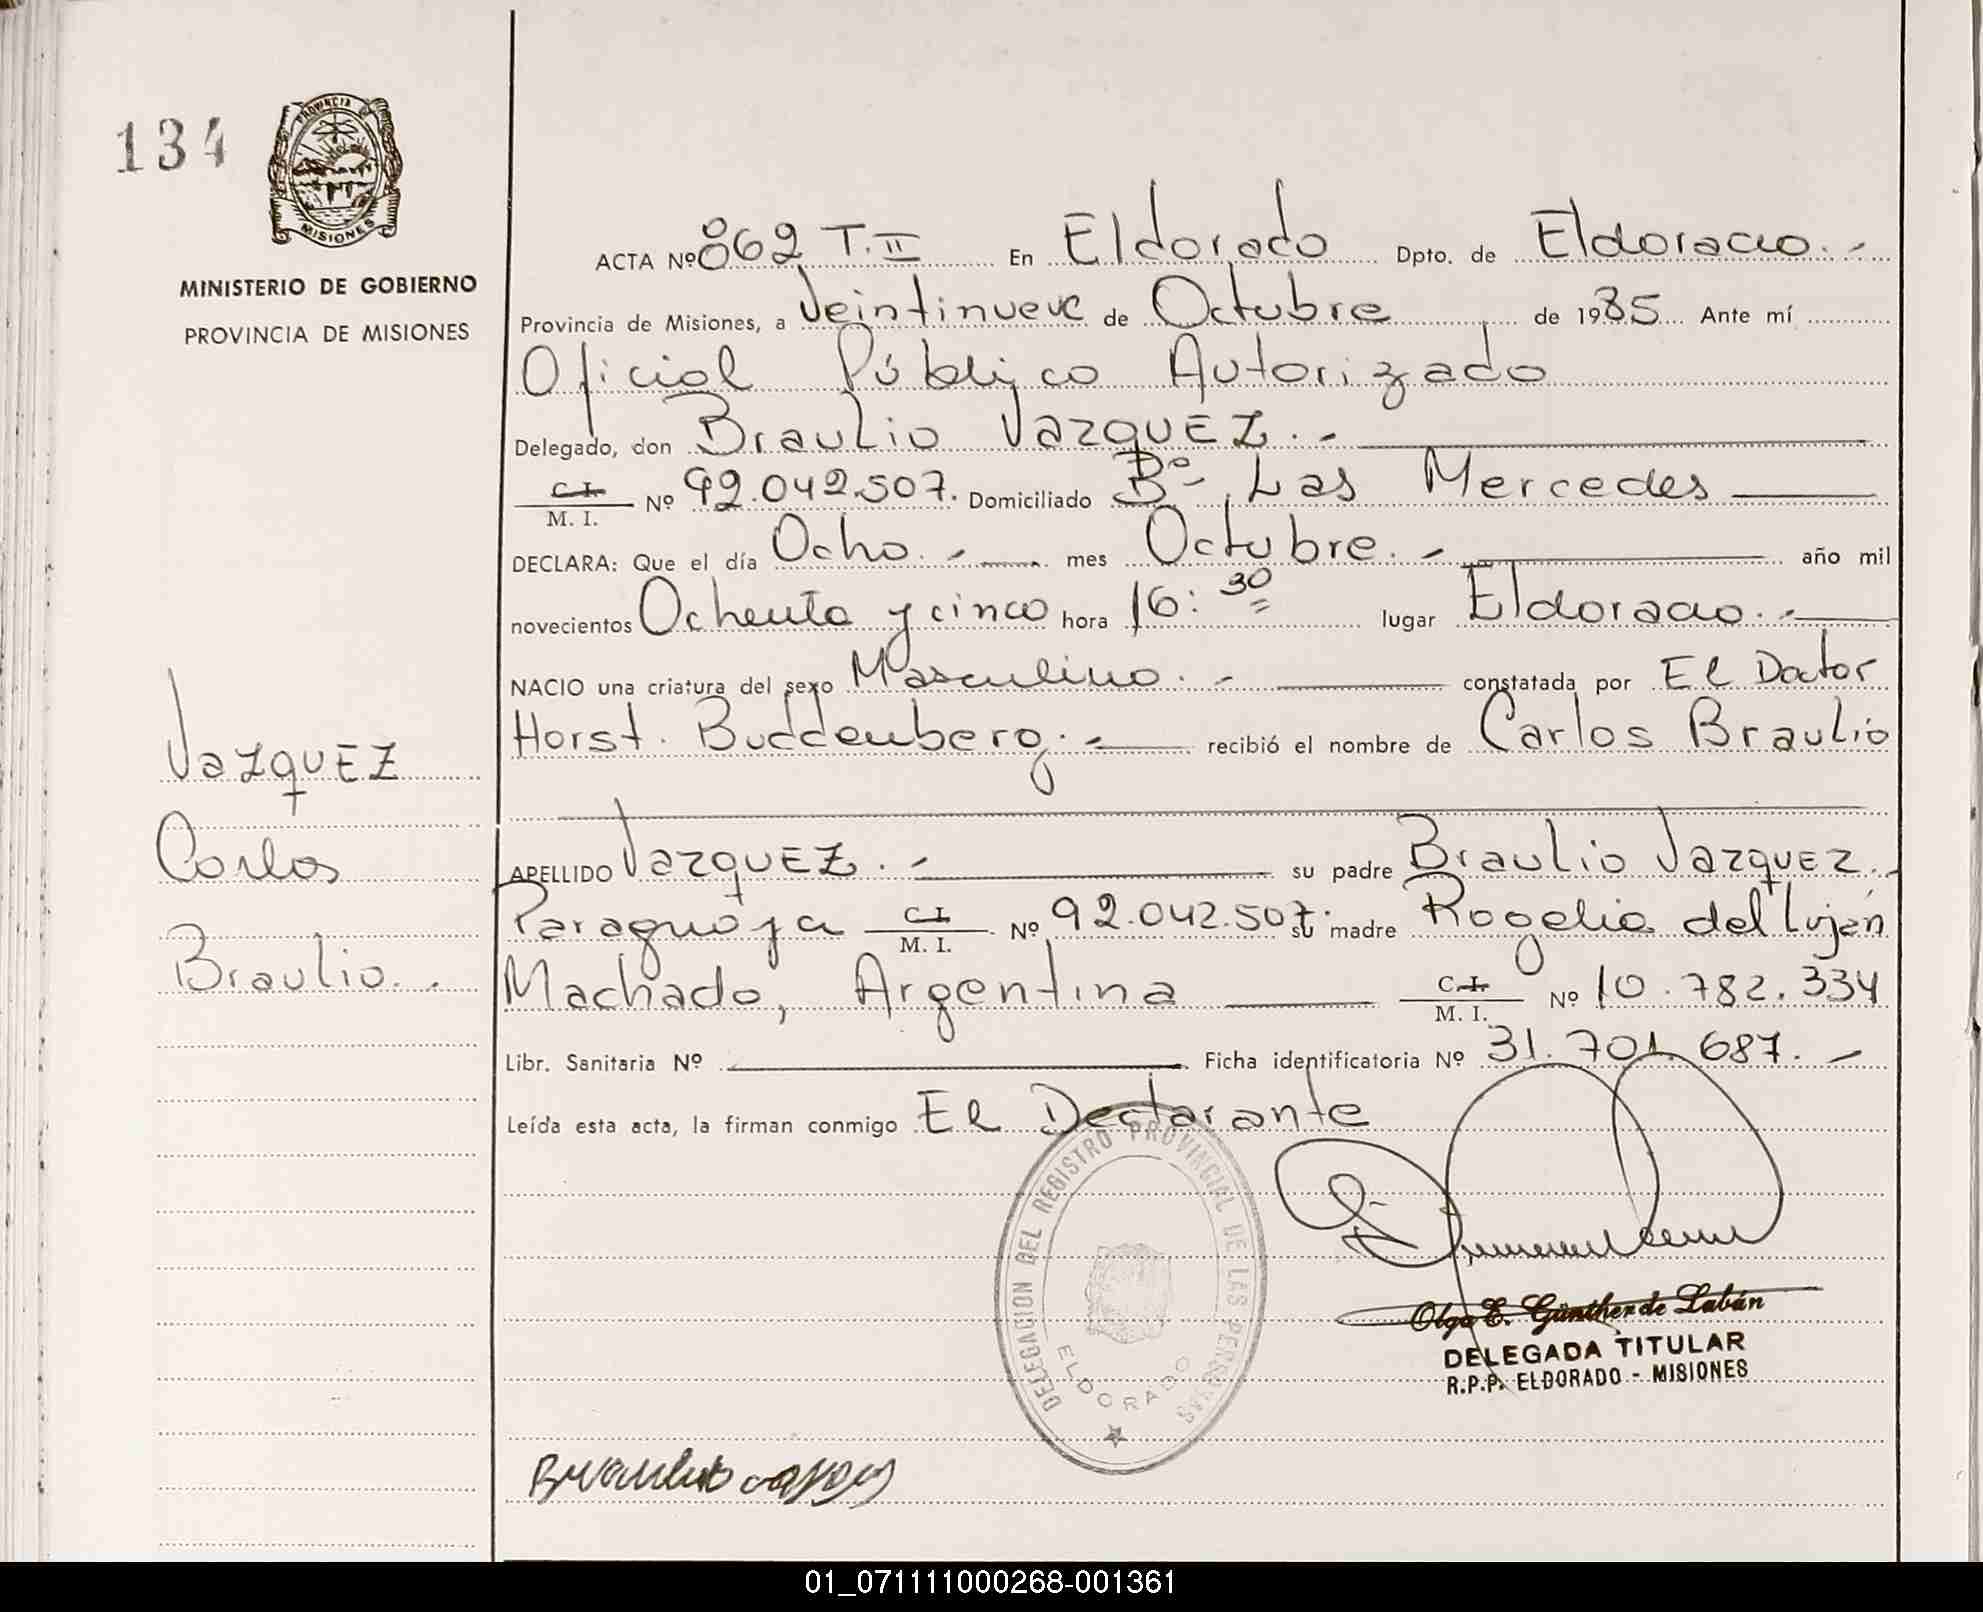 134
PROVINCIA
MISIONES
MINISTERIO DE GOBIERNO
PROVINCIA DE MISIONES
ACTA Nº 862 T. II En Eldorado Dpto. de Eldorado.-
Provincia de Misiones, a Veintinueve de Octubre de 1985 Ante mí
Oficial Público Autorizado
Delegado, don Braulio VazquEZ.-
C.I. M. I. Nº 92.042.507. Domiciliado Bº Las Mercedes
DECLARA: Que el día Ocho.- mes Octubre.- año mil
novecientos Ochenta y cinco hora 16:30 lugar Eldorado.-
NACIO una criatura del sexo Masculino.- constatada por El Doctor
Horst. Buddenberg.- recibió el nombre de Carlos Braulio
APELLIDO VazquEZ.- su padre Braulio VazquEZ.
Paraguaya C.I. M. I. Nº 92.042.507. su madre Rogelia del Luján
Machado, Argentina C.I. M. I. Nº 10.782.334
Libr. Sanitaria Nº Ficha identificatoria Nº 31.701.687.-
Leída esta acta, la firman conmigo El Declarante
VazquEZ
Carlos
Braulio.
DELEGACION DEL REGISTRO PROVINCIAL DE LAS PERSONAS
ELDORADO
Olga E. Günther de Labán
DELEGADA TITULAR
R.P.P. ELDORADO - MISIONES
Braulio
01_071111000268-001361